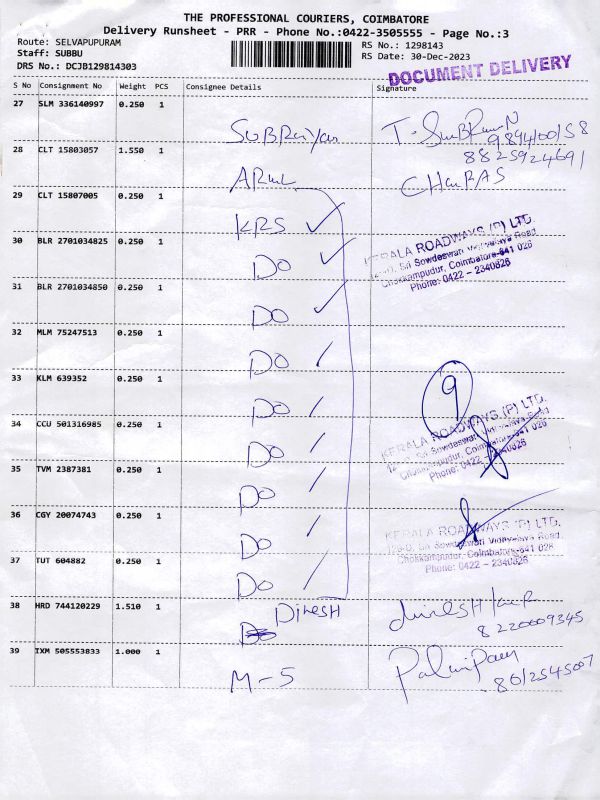 THE PROFESSIONAL COURIERS, COIMBATORE
Delivery Runsheet - PRR - Phone No.:0422-3505555 - Page No.:3
Route: SELVAPUPURAM
Staff: SUBBU
DRS No.: DCJB129814303
RS No.: 1298143
RS Date: 30-Dec-2023
DOCUMENT DELIVERY
S No Consignment No Weight PCS Consignee Details Signature
27 SLM 336140997 0.250 1
9894100158
8825924691
28 CLT 15803057 1.550 1
29 CLT 15807005 0.250 1 KRS
KERALA ROADWAYS (P) LTD.
Chokkampudur, Coimbatore-641 026
Phone: 0422 - 2340626
30 BLR 2701034825 0.250 1 DO
31 BLR 2701034850 0.250 1 DO
32 MLM 75247513 0.250 1 DO
33 KLM 639352 0.250 1 DO
9
KERALA ROADWAYS (P) LTD.
Chokkampudur, Coimbatore-641 026
Phone: 0422 - 2340626
34 CCU 501316985 0.250 1 DO
35 TVM 2387381 0.250 1 DO
36 CGY 20074743 0.250 1 DO
KERALA ROADWAYS (P) LTD.
Chokkampudur, Coimbatore-641 026
Phone: 0422 - 2340626
37 TUT 604882 0.250 1 DO
38 HRD 744120229 1.510 1 DINESH
8220009345
39 IXM 505553833 1.000 1 M-5